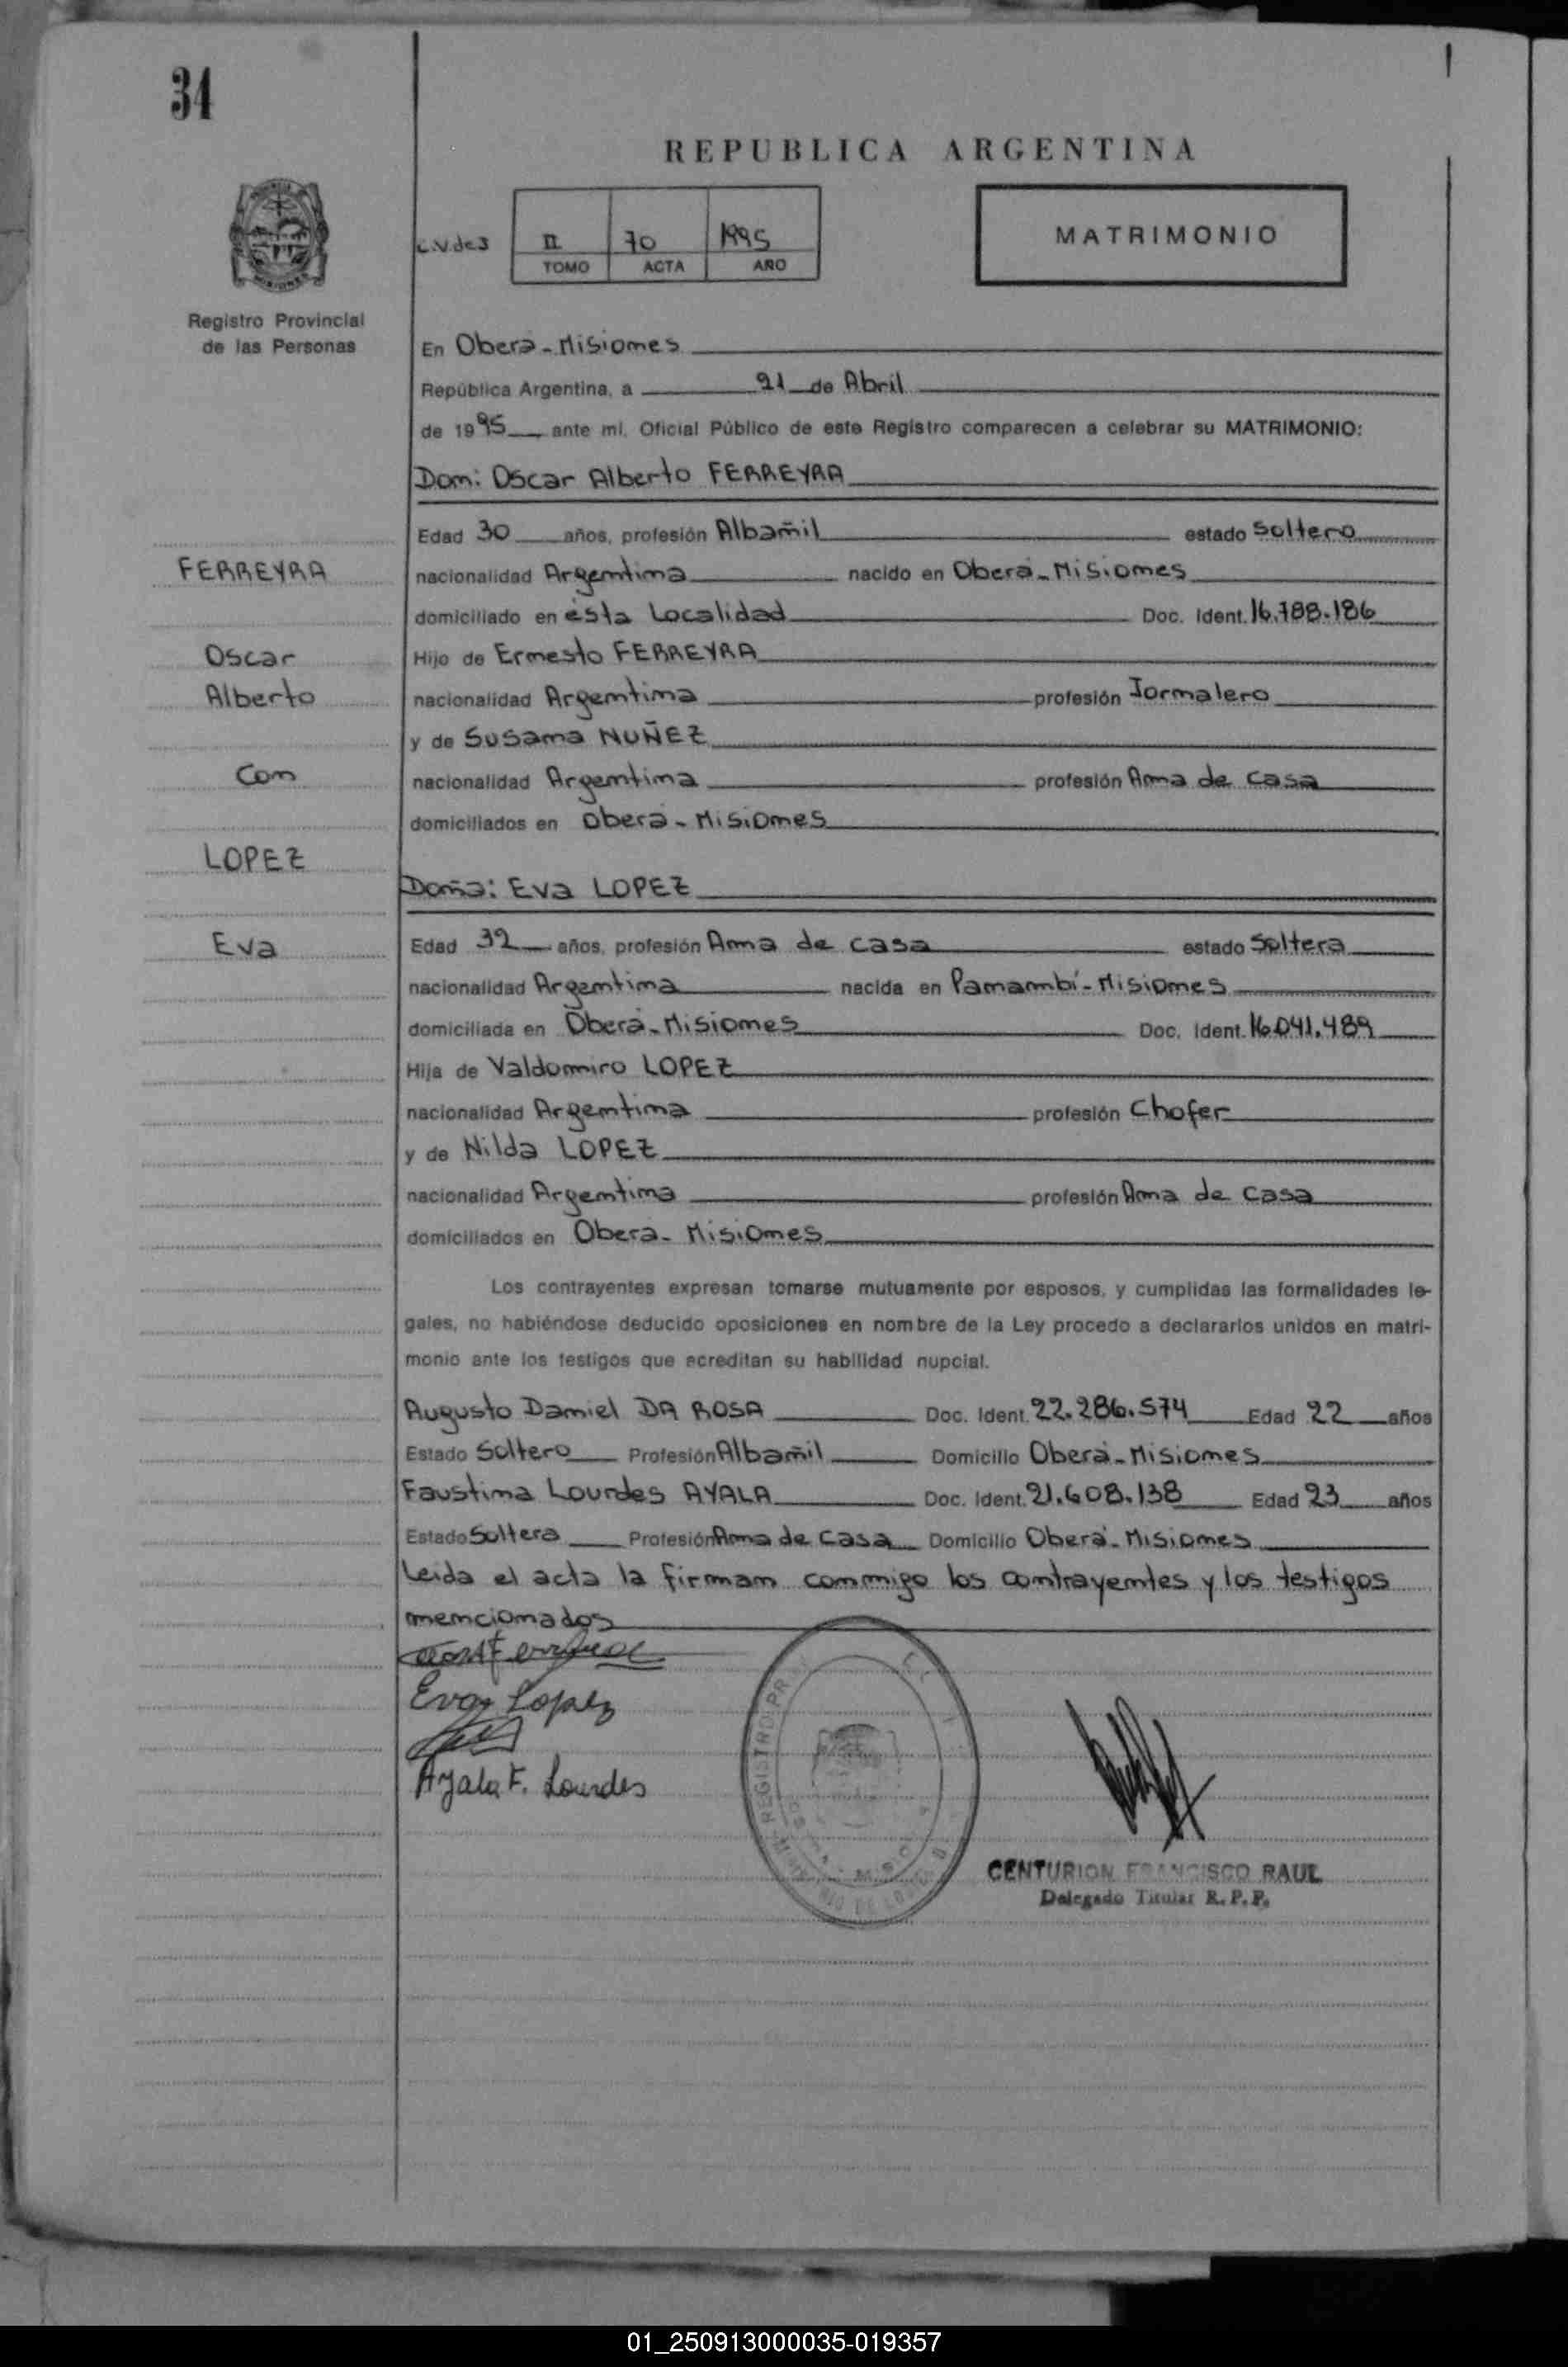 34
REPUBLICA ARGENTINA
II 70 1995
TOMO ACTA AÑO
MATRIMONIO
Registro Provincial
de las Personas
En Oberá - Misiones
República Argentina, a 21 de Abril
de 1995 ante mi, Oficial Público de este Registro comparecen a celebrar su MATRIMONIO:
Don: Oscar Alberto FERREYRA
Edad 30 años, profesión Albañil estado Soltero
FERREYRA
nacionalidad Argentina nacido en Oberá - Misiones
domiciliado en ésta Localidad Doc. Ident. 16.788.186
Oscar
Hijo de Ernesto FERREYRA
Alberto
nacionalidad Argentina profesión Jornalero
y de Susana NUÑEZ
Con
nacionalidad Argentina profesión Ama de Casa
domiciliados en Oberá - Misiones
LOPEZ
Doña: Eva LOPEZ
Eva
Edad 32 años, profesión Ama de Casa estado Soltera
nacionalidad Argentina nacida en Panambí - Misiones
domiciliada en Oberá - Misiones Doc. Ident. 16.041.489
Hija de Valdomiro LOPEZ
nacionalidad Argentina profesión Chofer
y de Nilda LOPEZ
nacionalidad Argentina profesión Ama de Casa
domiciliados en Oberá - Misiones
Los contrayentes expresan tomarse mutuamente por esposos, y cumplidas las formalidades le-
gales, no habiéndose deducido oposiciones en nombre de la Ley procedo a declararlos unidos en matri-
monio ante los testigos que acreditan su habilidad nupcial.
Augusto Daniel DA ROSA Doc. Ident. 22.286.574 Edad 22 años
Estado Soltero Profesión Albañil Domicilio Oberá - Misiones
Faustina Lourdes AYALA Doc. Ident. 21.608.138 Edad 23 años
Estado Soltera Profesión Ama de Casa Domicilio Oberá - Misiones
Leida el acta la firman conmigo los contrayentes y los testigos
mencionados
Eva Lopez
Ayala F. Lourdes
CENTURION FRANCISCO RAUL
Delegado Titular R. P. P.
01_250913000035-019357